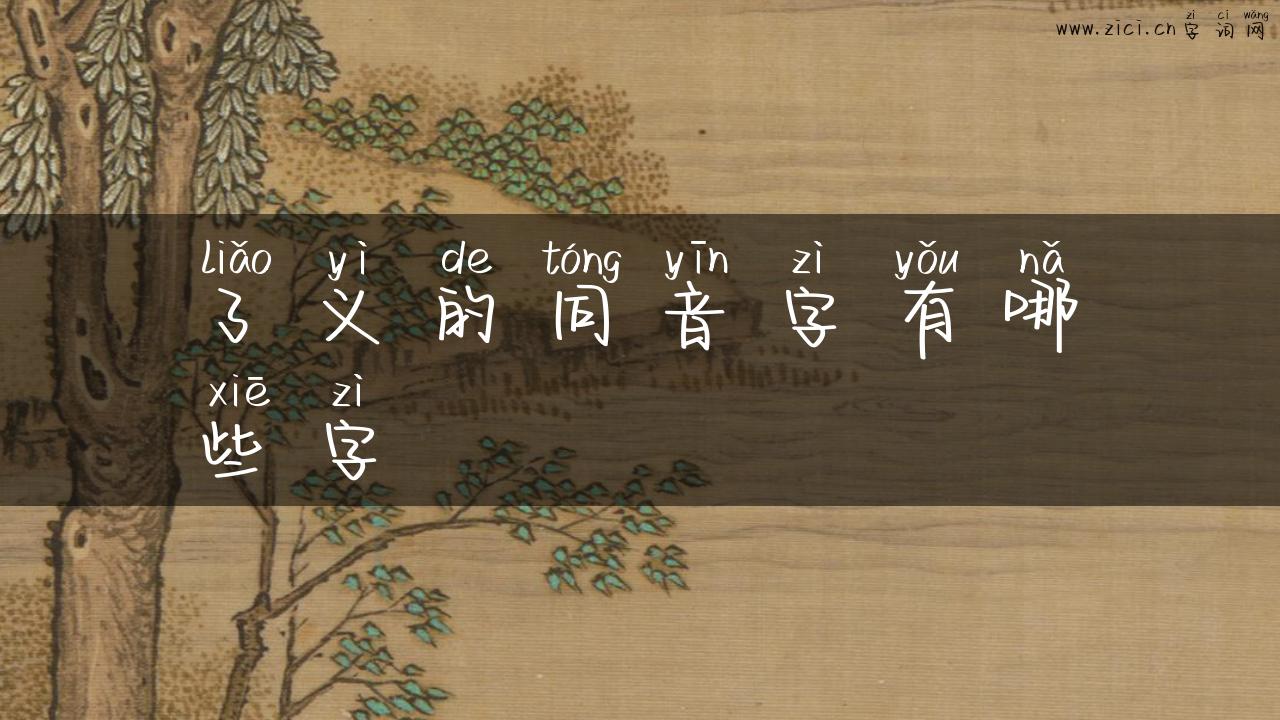 zì cí wǎng
www.zici.cn 字词网
liǎo yì de tóng yīn zì yǒu nǎ
了义的同音字有哪
xiē zì
些字